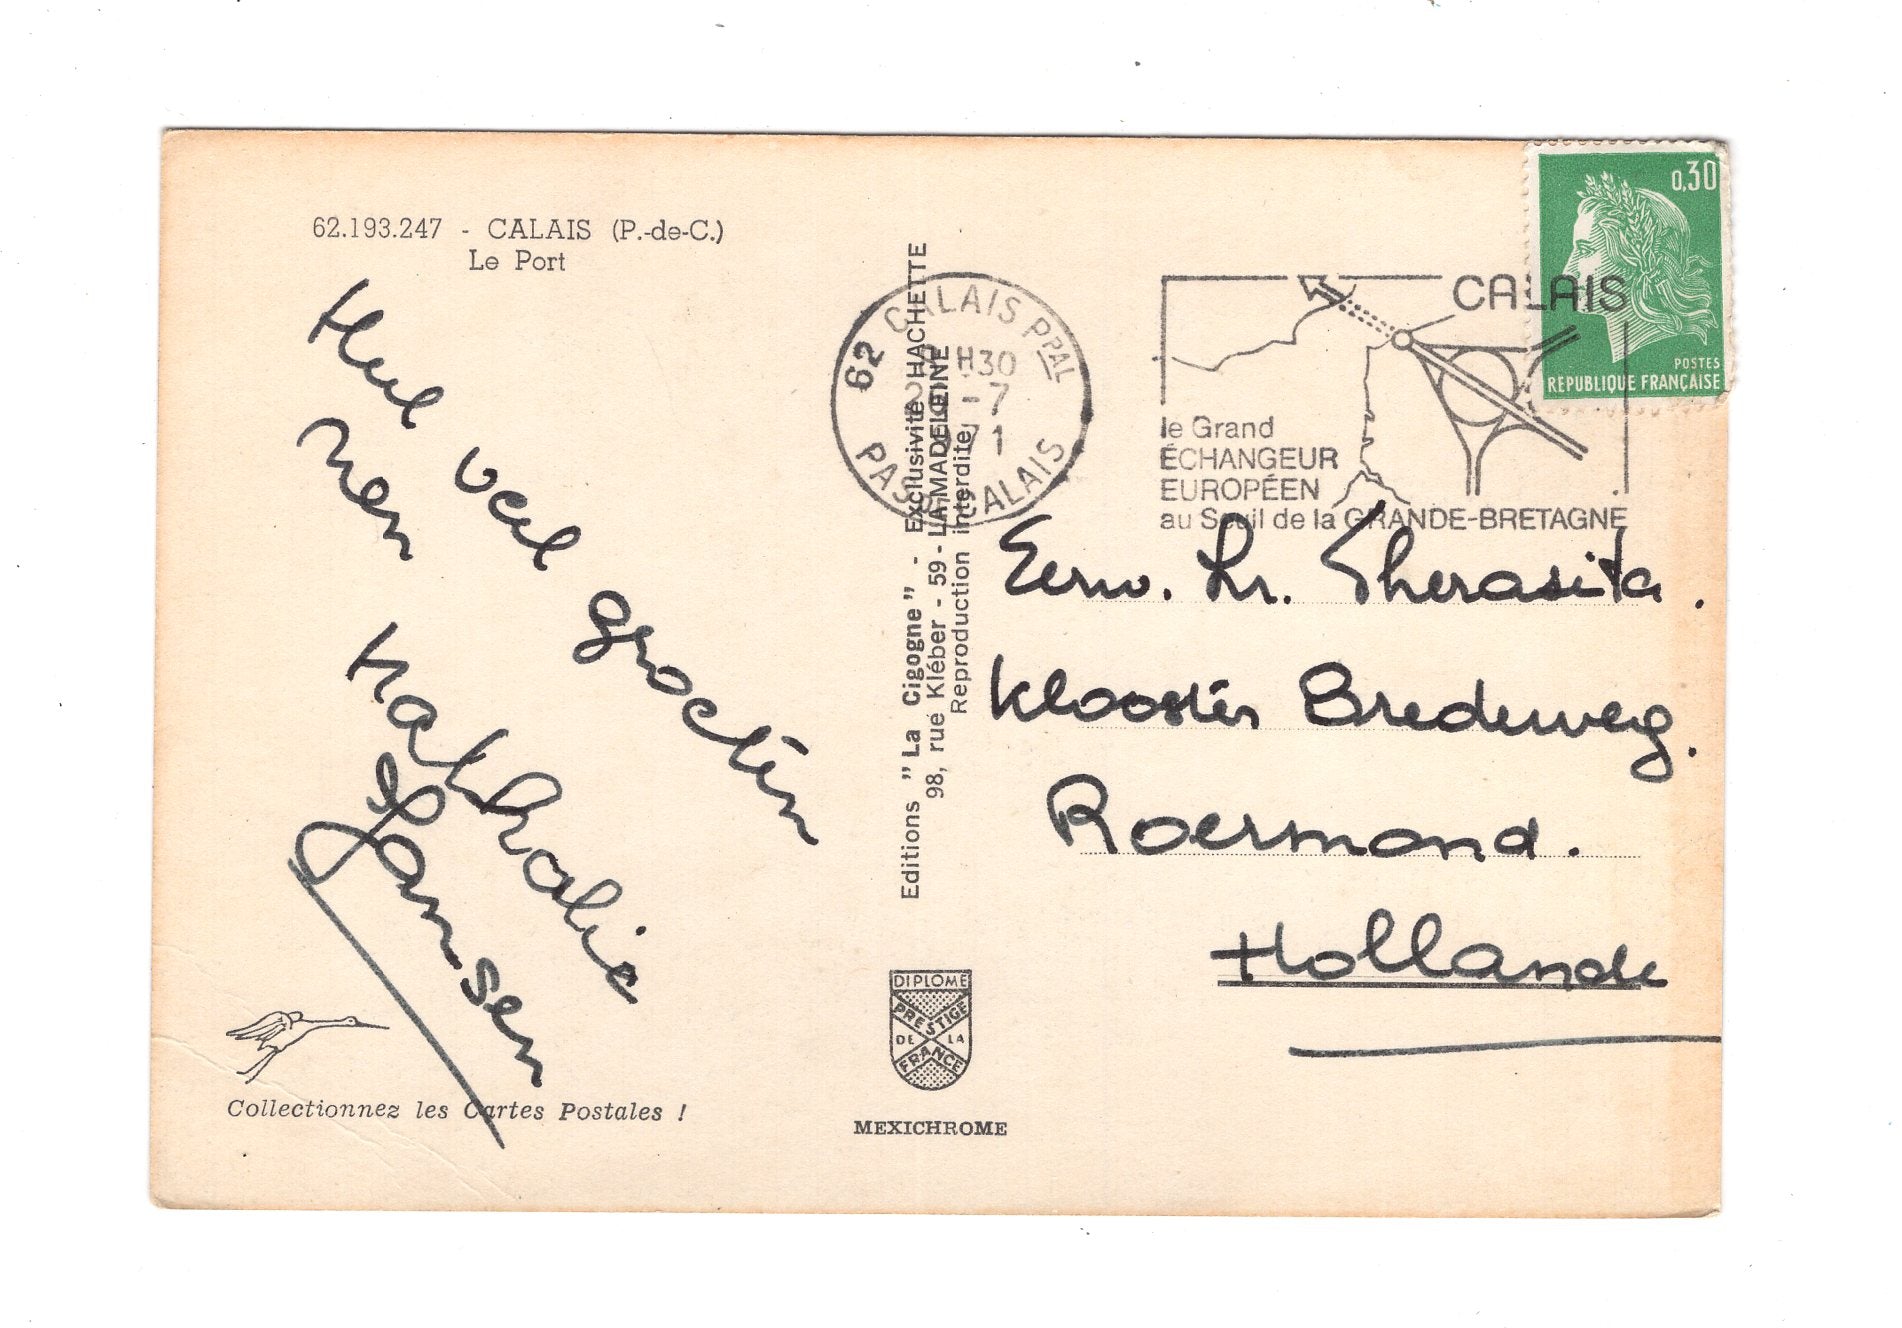 62.193.247 - CALAIS (P.-de-C.)
Le Port
Heel veel groeten
Nathalie
Jansen
Collectionnez les Cartes Postales !
Editions " La Cigogne " - Exclusivité HACHETTE
98, rue Kléber - 59 - LA MADELEINE
Reproduction interdite
DIPLOME
PRESTIGE
DE LA
FRANCE
MEXICHROME
62 CALAIS PPAL
H30
-7
PAS DE CALAIS
CALAIS
le Grand
ÉCHANGEUR
EUROPÉEN
au Seuil de la GRANDE-BRETAGNE
0,30
POSTES
REPUBLIQUE FRANÇAISE
Eerw. Zr. Therasita.
Klooster Bredeweg.
Roermond.
Hollande